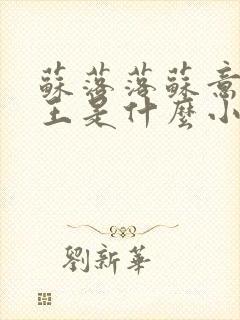 蘇落落蘇意
王是什麼小
劉新華